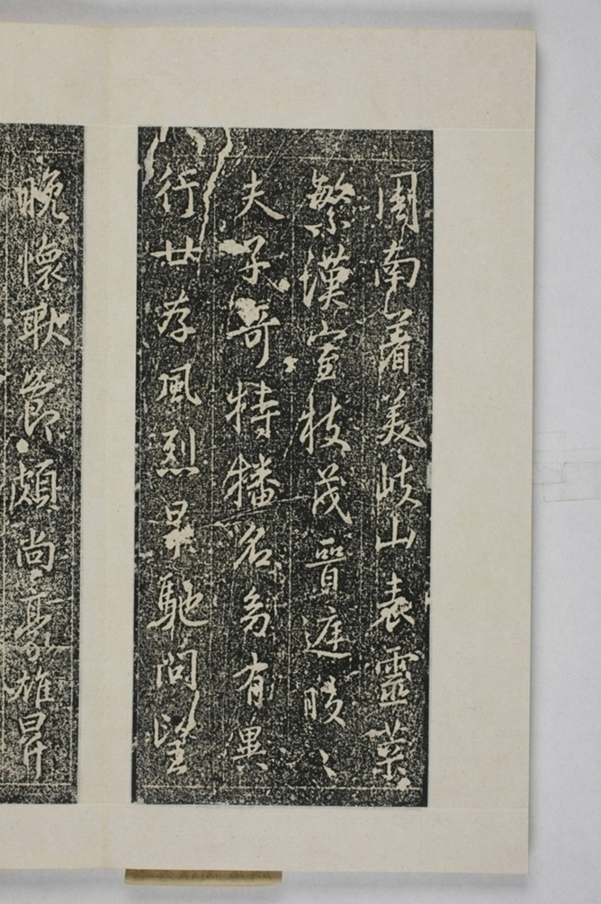 周南著美岐山表靈葉
繁漢室枝茂晉庭曖〻
夫子奇特播名幼有異
行世存風烈早馳問望
晚懷耿節頗尚豪雄昇